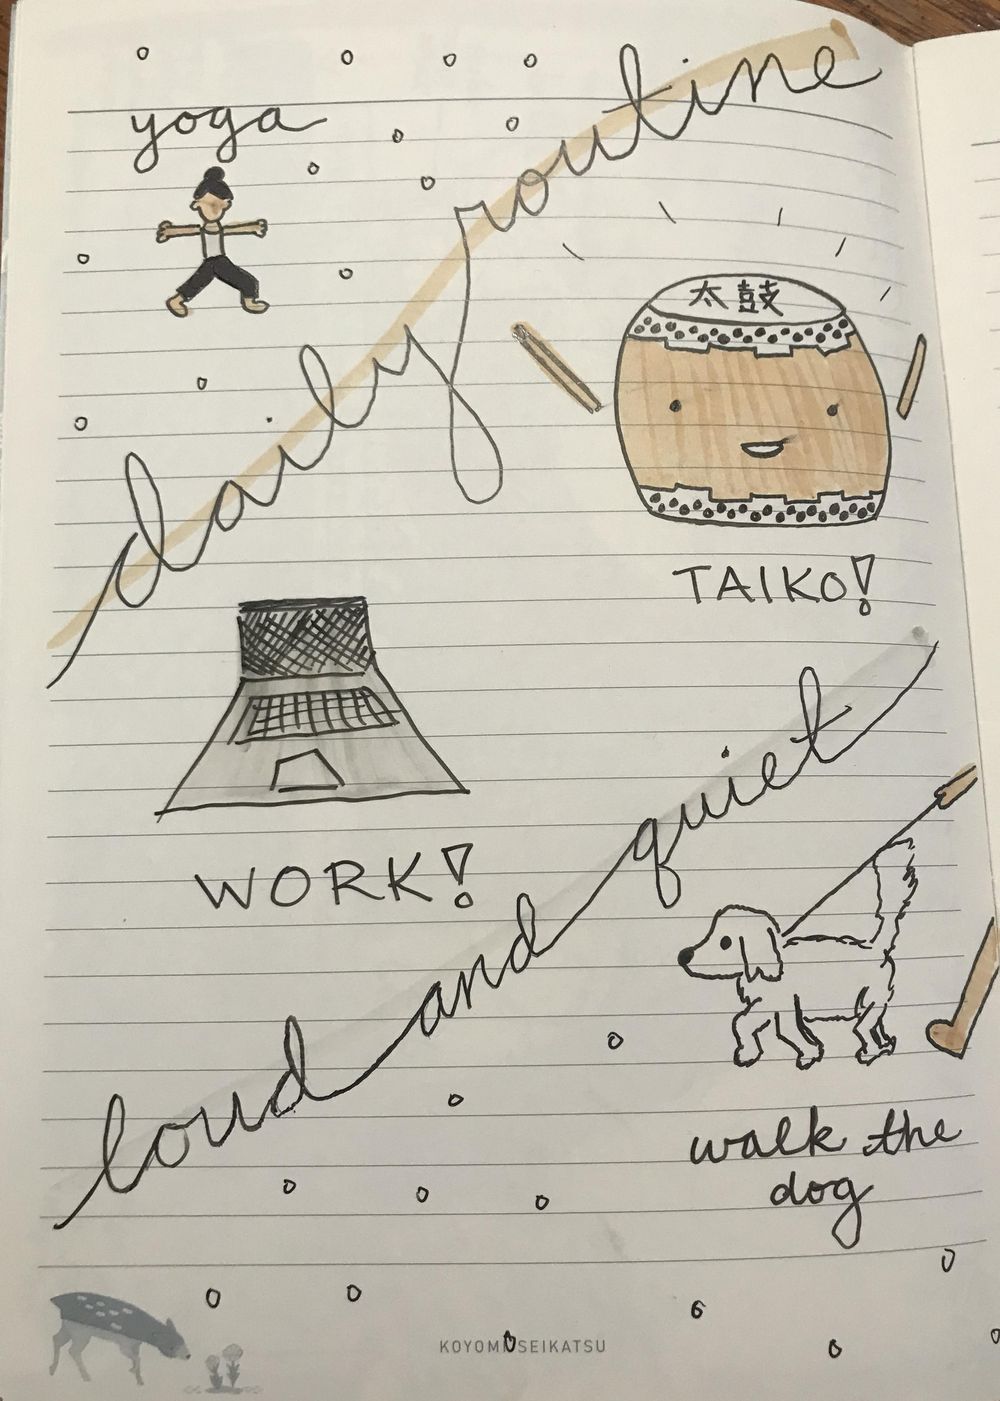 yoga
daily routine
太鼓
TAIKO!
WORK!
loud and quiet
walk the
dog
KOYOMI SEIKATSU